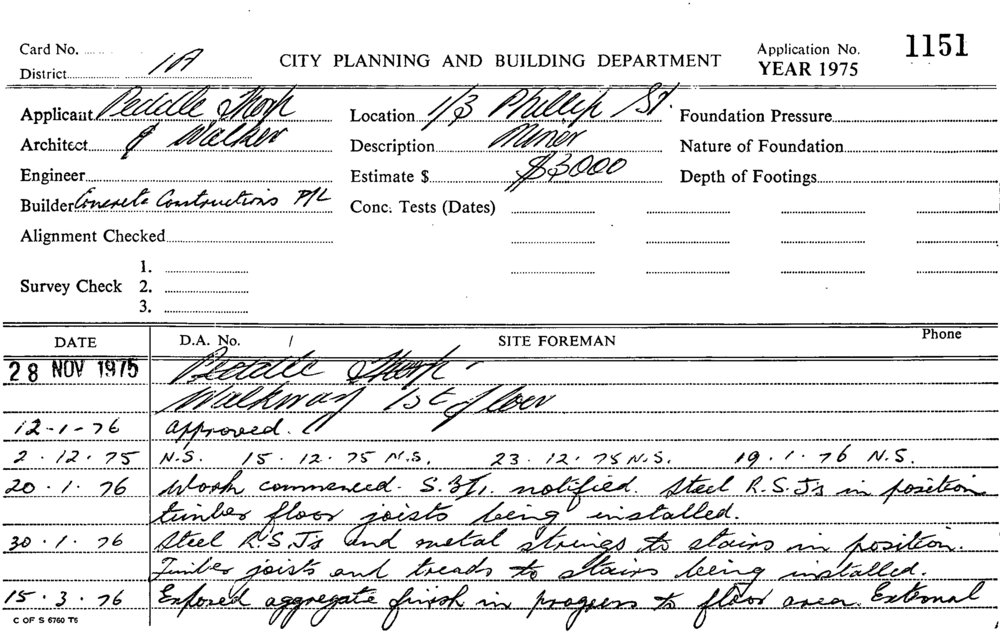 Card No.
District 1A
CITY PLANNING AND BUILDING DEPARTMENT
Application No. 1151
YEAR 1975
Applicant Peddle Thorp
Location 1/3 Phillip St.
Foundation Pressure
Architect & Walker
Description Minor
Nature of Foundation
Engineer
Estimate $ $3000
Depth of Footings
Builder Concrete Constructions P/L
Conc. Tests (Dates)
Alignment Checked
1.
Survey Check 2.
3.
DATE D.A. No. / SITE FOREMAN Phone
28 NOV 1975 Peddle Thorp
Walkway 1st floor
12-1-76 approved.
2.12.75 N.S. 15.12.75 N.S. 23.12.75 N.S. 19.1.76 N.S.
20.1.76 Work commenced. notified. Steel R.S.J's in position
timber floor joists being installed.
30.1.76 Steel R.S.J's and metal strings to stairs in position.
Timber joists and treads to stairs being installed.
15.3.76 Exposed aggregate finish in progress to floor area. External
C OF S 6760 T6